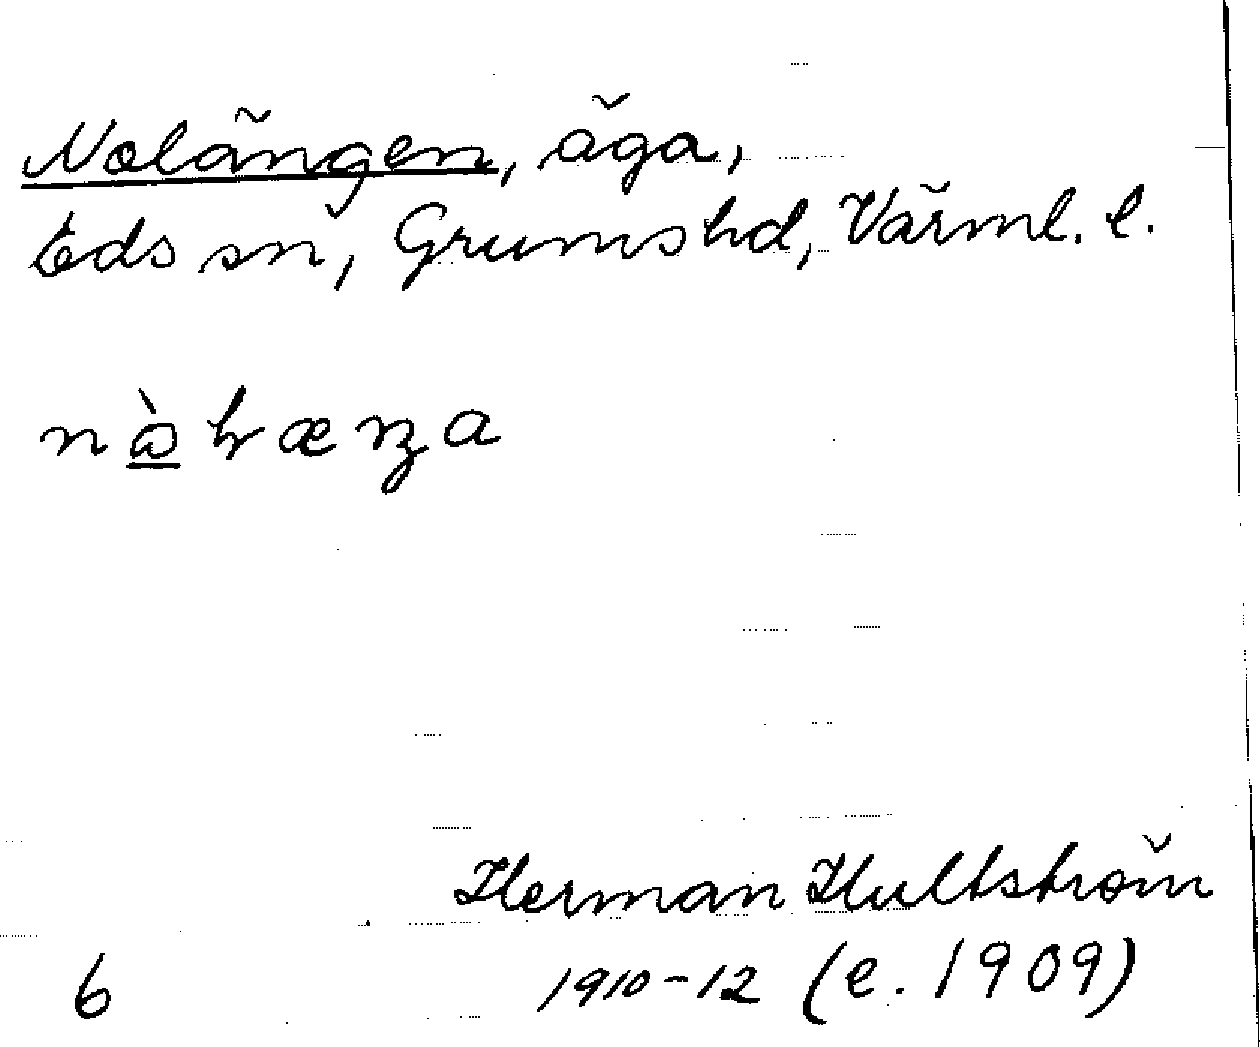 Nolängen, äga,
Eds sn, Grums hd, Värml. l.
Herman Hultström
6 1910-12 (e. 1909)